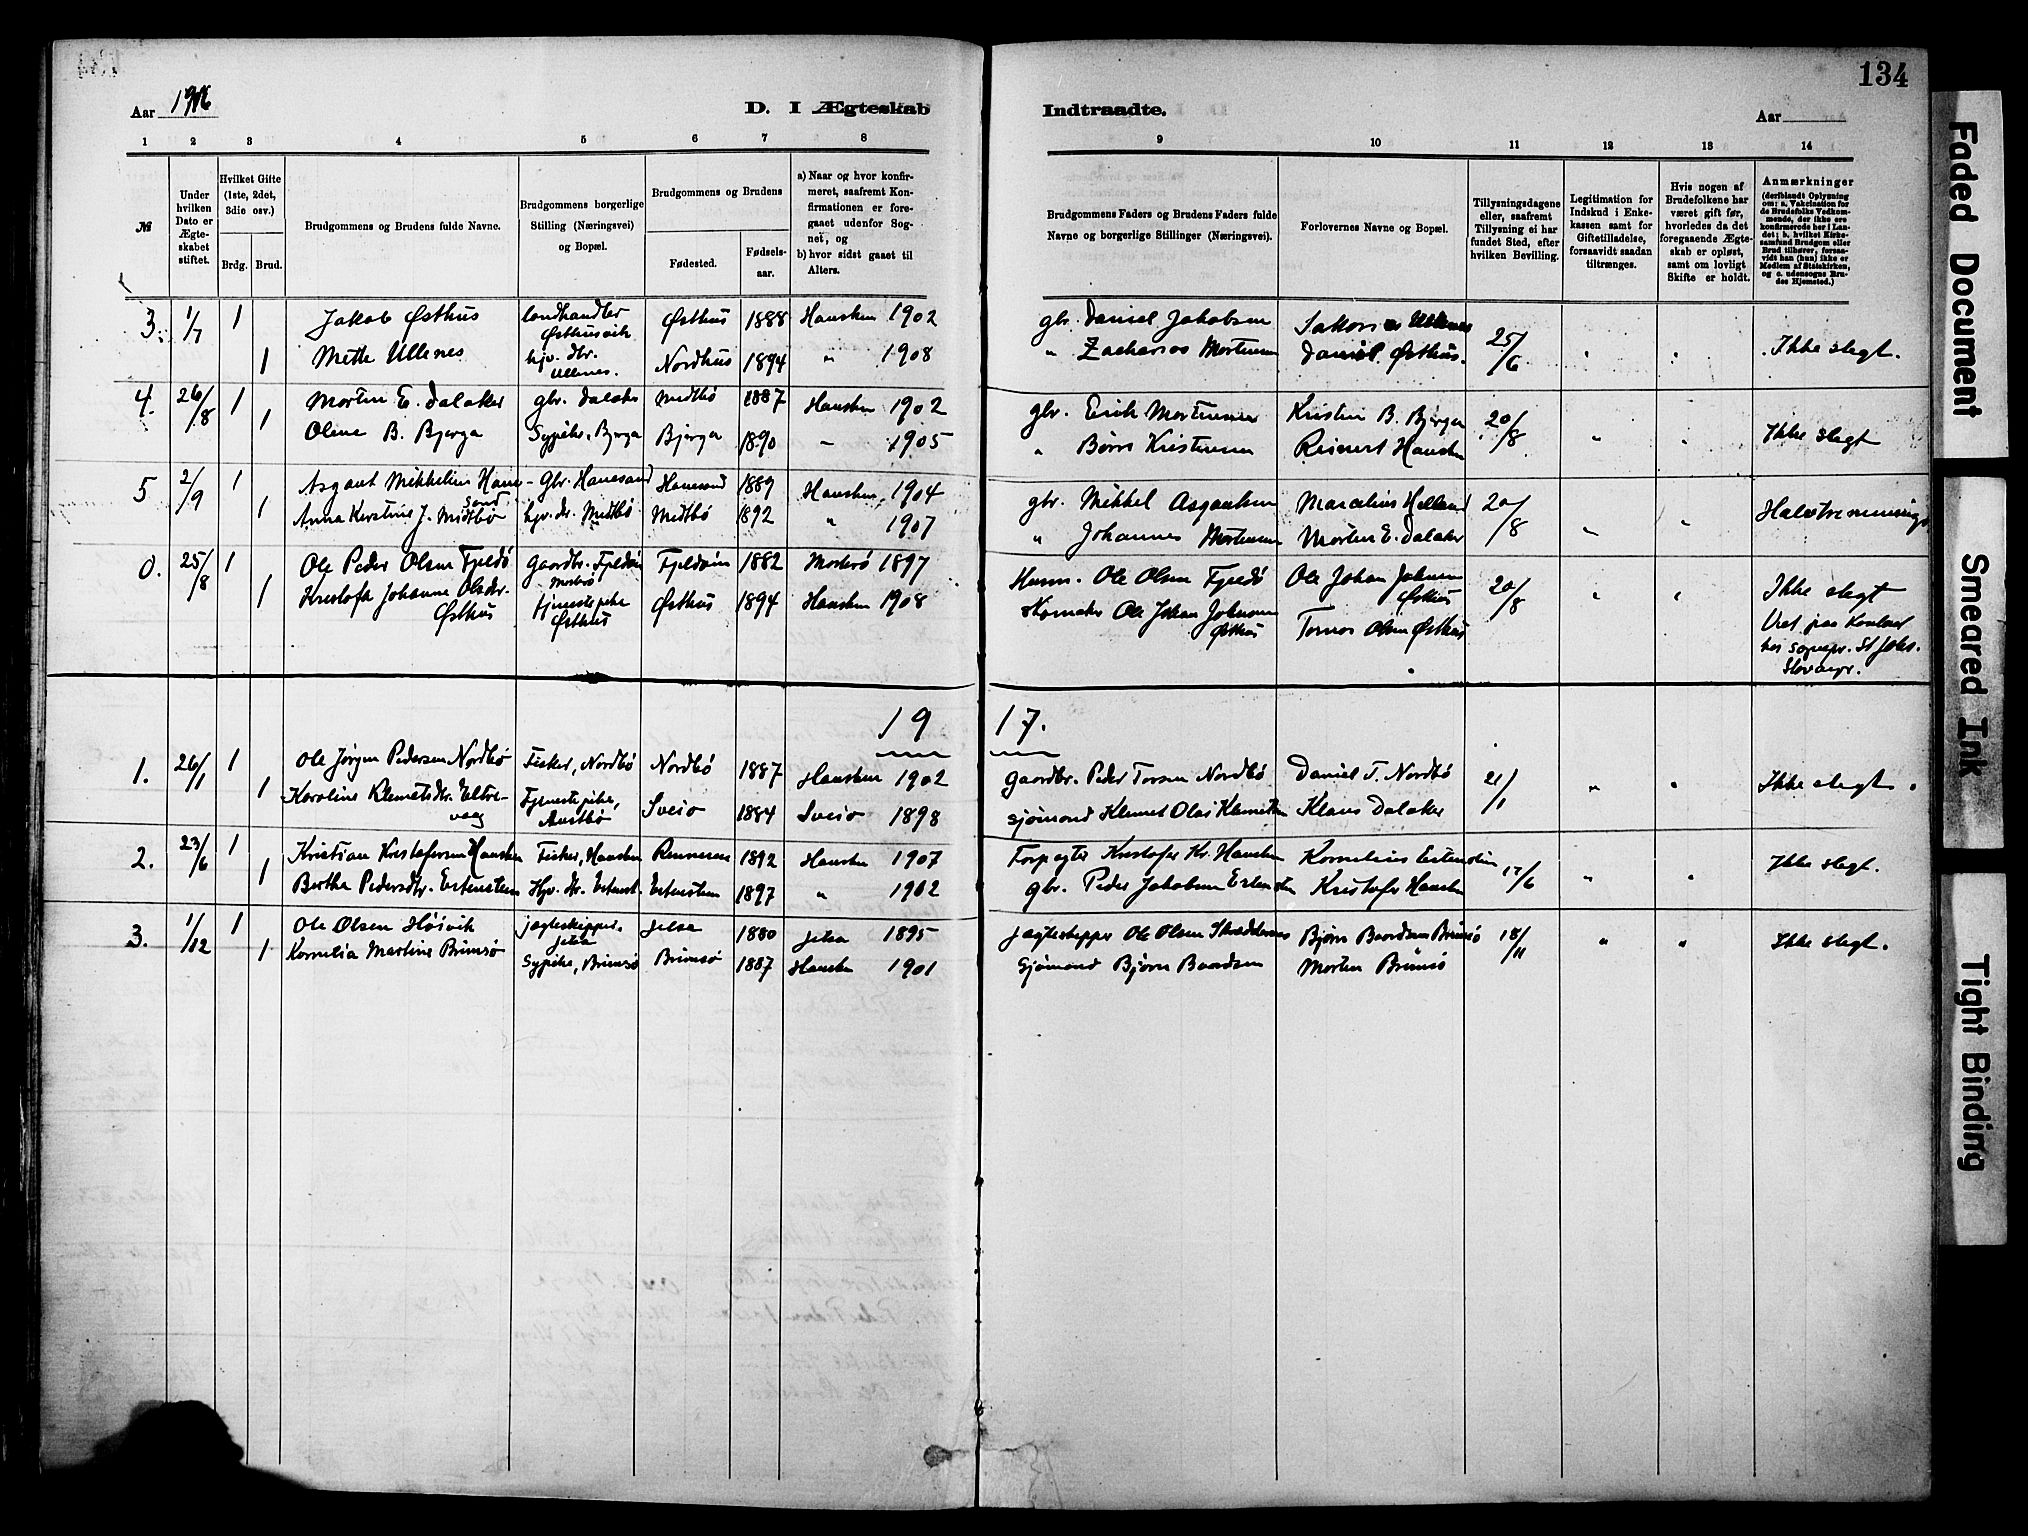 134
Aar 1916
D. I Ægteskab
Indtraadte.
Aar
1 2 3 4 5 6 7 8
9 10 11 12 13 14
№
Under hvilken Dato er Ægteskabet stiftet.
Hvilket Gifte (1ste, 2det, 3die osv.)
Brdg. Brud.
Brudgommens og Brudens fulde Navne.
Brudgommens borgerlige Stilling (Næringsvei) og Bopæl.
Brudgommens og Brudens
Fødested.
Fødselsaar.
a) Naar og hvor konfirmeret, saafremt Konfirmationen er foregaaet udenfor Sognet, og
b) hvor sidst gaaet til Alters.
Brudgommens Faders og Brudens Faders fulde Navne og borgerlige Stillinger (Næringsvei).
Forlovernes Navne og Bopæl.
Tillysningsdagene eller, saafremt Tillysning ei har fundet Sted, efter hvilken Bevilling.
Legitimation for Indskud i Enkekassen samt for Giftetilladelse, forsaavidt saadan tiltrænges.
Hvis nogen af Brudefolkene har været gift før, hvorledes da det foregaaende Ægteskab er opløst, samt om lovligt Skifte er holdt.
Anmærkninger (deriblandt Oplysning om: a. Vakcination for de Brudefolks Vedkommende, der ikke ere konfirmerede her i Landet; b. hvilket Kirkesamfund Brudgom eller Brud tilhører, forsaavidt han (hun) ikke er Medlem af Statskirken, og c. udensogns Brudes Hjemsted.)
3. 1/7 1 Jakob Østhus landhandler Østhusvik Østhus 1888 Hausken 1902 gbr. Daniel Jakobsen 25/6 Ikke slegt.
1 Mette Ullenes hjv. dtr. Ullenes. Nordhus 1894 " 1908 " Zacharias Mortensen Daniel Østhus.
4. 26/8 1 Morten E. Dalaker gbr. Dalaker Midtbö 1887 Hausken 1902 gbr. Erik Mortensen Kristen B. Bjerga 20/8 Ikke slegt
1 Oline B. Bjerga Sypike, Bjerga Bjerga 1890 " 1905 " Reinert Hausken
5 2/9 1 Asgaut Mikkelsen Hanesand Gbr. Hanesand Hanesand 1889 Hausken 1904 gbr. Mikkel Asgautsen 20/8
1 Anna Kerstine J. Midtbö hjv. dr. Midtbö Midtbö 1892 " 1907 " Johannes Mortensen Morten E. Dalaker
25/8 1 Ole Peder Olsen Fjeldö Mosterö Fjeldöen 1882 Mosterö 1897 Husm. Ole Olsen Fjeldö Ole Johan Johnsen Østhus 20/8 Ikke slegt
1 Johanne Olsdtr. Østhus tjenestepike Østhus Østhus 1894 Hausken 1908 Skomaker Ole Johan Johnsen Østhus Olsen Østhus
19 17.
1. 26/1 1 Ole Jörgen Pedersen Nordbö Fisker, Nordbö Nordbö 1887 Hausken 1902 Gaardbr. Peder Torsen Nordbö Daniel T. Nordbö 21/1 Ikke slegt.
1 Karoline Klemetsdtr. Eltrevaag Tjenestepike, Austbö Sveio 1884 Sveio 1898 Sjömand Klemet Olai Klemetsen Klaus Dalaker
2. 23/6 1 Kristian Kristofersen Hausken Fisker, Hausken Rennesø 1892 Hausken 1907 Forpagter Kristofer Kr. Hausken Kornelius Ertenstein 17/6 Ikke slegt.
1 Berthe Pedersdtr. Ertenstein Hjv. dr. Ertenst. Ertenstein 1897 " 1902 gbr. Peder Jakobsen Ertenstein Kristofer Hausken
3. 1/12 1 Ole Olsen Höivik jagteskipper, Jelsa Jelsa 1880 Jelsa 1895 Jagteskipper Ole Olsen Bjørn Baardsen Brimsö 18/11 Ikke slegt.
1 Kornelia Martine Brimsö Sypike, Brimsö Brimsö 1887 Hausken 1901 Sjömand Bjørn Baardsen Morten Brimsö
Faded Document
Smeared Ink
Tight Binding